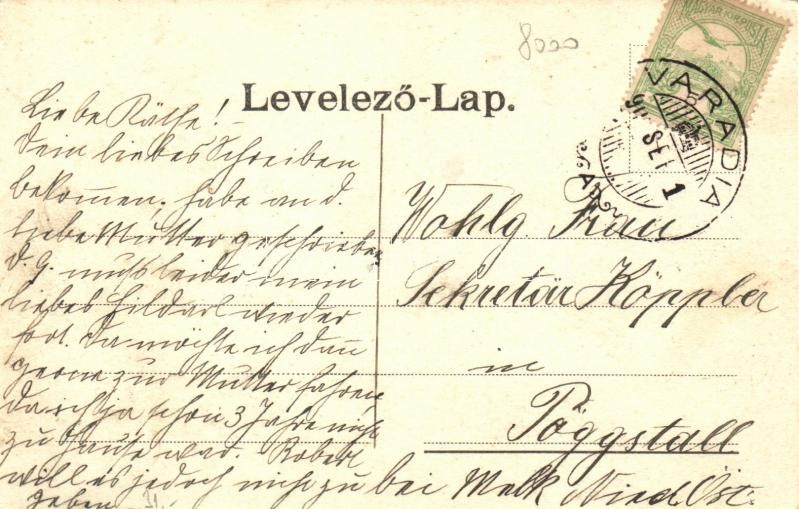 8000
Levelező-Lap.
MAGYAR KIR. POSTA
VARADIA
SEP 1
Liebe Käthe! –
Dein liebes Schreiben
bekommen, habe an d.
liebe Mutter geschrieben
d. J. muss leider mein
liebes Hildarl wieder
fort. Da möchte ich dan
gerne zur Mutter fahren
da ich ja schon 3 Jahre nicht
zu Hause war. Robert
will es jedoch nicht zu
geben
Wohlg. Frau
Sekretär Köppler
in
Pöggstall
bei Melk Nied. Öst.